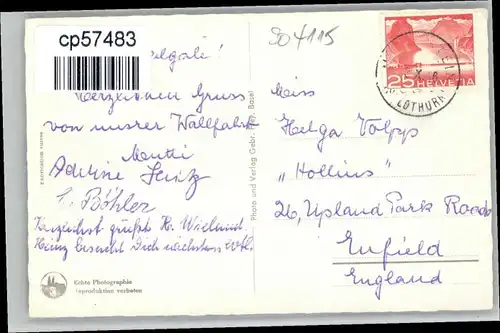 cp57483
Herzlichen Gruss
von unsrer Wallfahrt
Mutti
Böhler
Herzlichst grüßt Hr. Wieland
Heinz besucht Dich nächstens
Echte Photographie
Reproduktion verboten
Photo und Verlag Gebr. Basel
904115
25 HELVETIA
LOTHURN
Miss
Helga Volpp
„Hollins"
26, Upland Park Road
Enfield
England